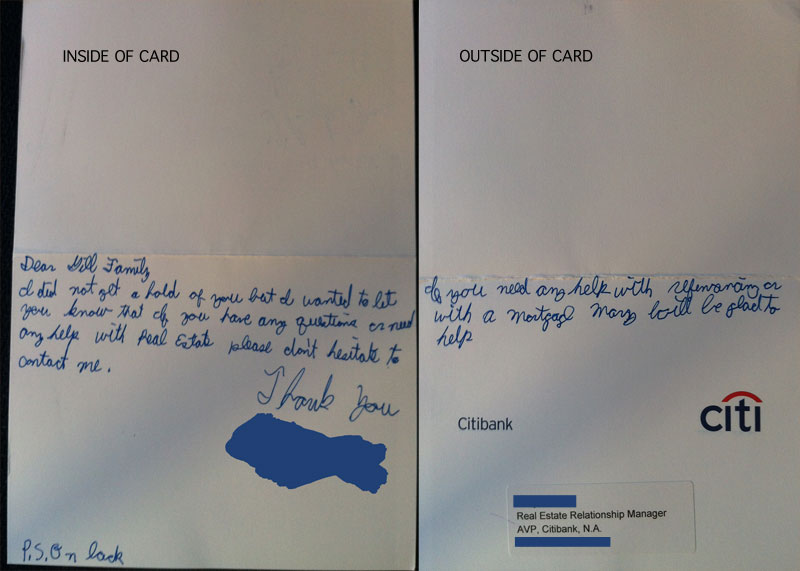 INSIDE OF CARD
Dear Gill Family,
I did not get a hold of you but I wanted to let
you know that if you have any questions or need
any help with Real Estate please don't hesitate to
contact me.
Thank You
P.S. On back
OUTSIDE OF CARD
If you need any help with refinancing or
with a mortgage Mary will be glad to
help
Citibank
citi
Real Estate Relationship Manager
AVP, Citibank, N.A.